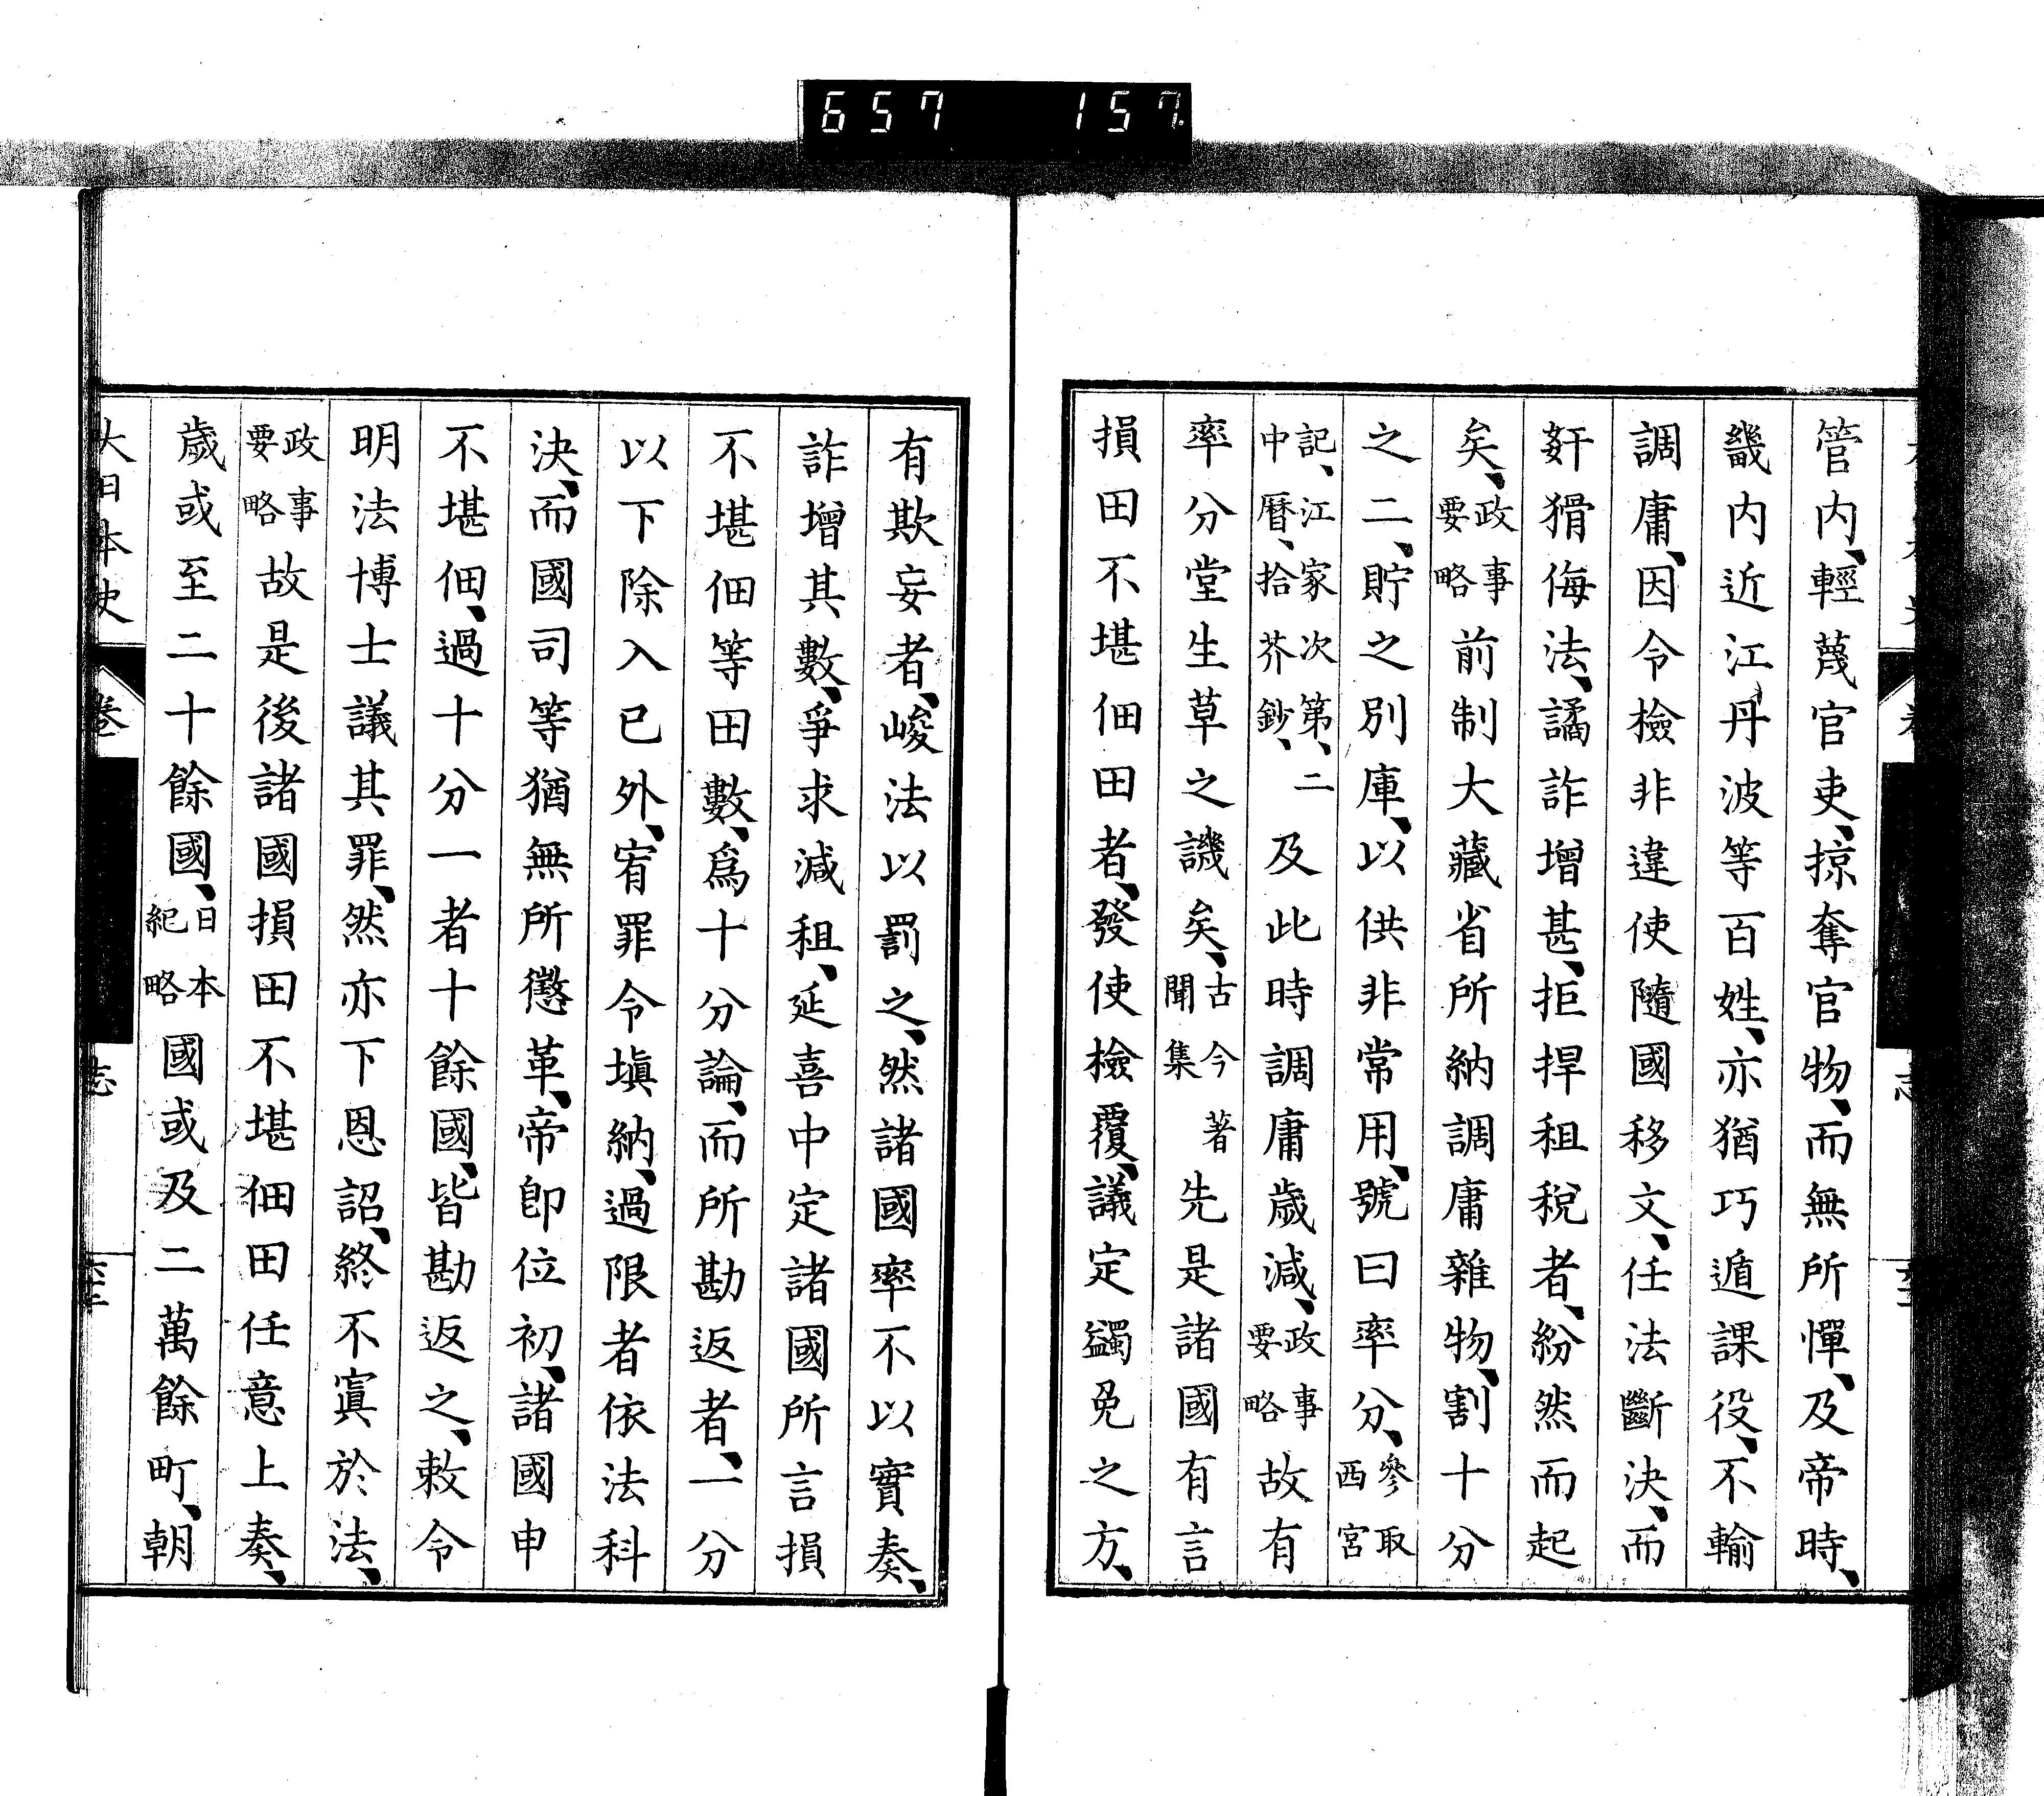 657 157
管内、輕蔑官吏、掠奪官物、而無所憚、及帝時、
畿内近江丹波等百姓、亦猶巧遁課役、不輸
調庸、因令檢非違使隨國移文、任法斷決、而
姧猾侮法、譎詐增甚、拒捍租稅者、紛然而起
矣、政事要略前制大藏省所納調庸雜物、割十分
之二、貯之別庫、以供非常用、號曰率分、參取西宮
記、江家次第、二中曆、拾芥鈔、及此時調庸歲減、政事要略故有
率分堂生草之譏矣、古今著聞集先是諸國有言
損田不堪佃田者、發使檢覆、議定蠲免之方、
有欺妄者、峻法以罰之、然諸國率不以實奏、
詐增其數、爭求減租、延喜中定諸國所言損
不堪佃等田數、爲十分論、而所勘返者、一分
以下除入已外、宥罪令塡納、過限者依法科
決、而國司等猶無所懲革、帝卽位初、諸國申
不堪佃、過十分一者十餘國、皆勘返之、敕令
明法博士議其罪、然亦下恩詔、終不寘於法、
政事要略故是後諸國損田不堪佃田任意上奏、
歲或至二十餘國、日本紀略國或及二萬餘町、朝
大日本史 卷 志